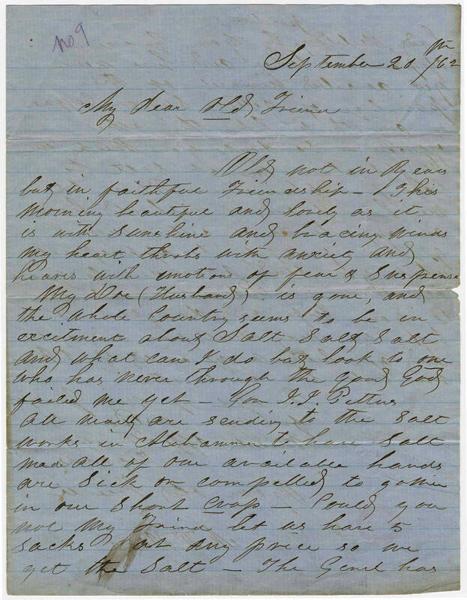 No 9
September 20th /62
My dear Old Friend
Old not in Years
but in faithful Friendship - This
morning beautiful and lovely as it
is with sunshine and bracing winds
my heart throbs with anxiety and
heaves with emotions of fear & suspense
My Doe (Husband) is gone, and
the whole Country seems to be in
excitment about Salt Salt Salt
and what can I do but look to one
who has never through the Good God
failed me yet - Gov J.J. Pettus
all most are sending to the Salt
works in Alabamma to have Salt
mad all of our available hands
are Sick or compelled to gather
in our short crop - Could you
not My Friend let us have 10
sacks at any price so we
get the Salt - The Genrl has